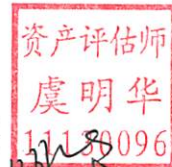 资产评估师
虞明华
11180096